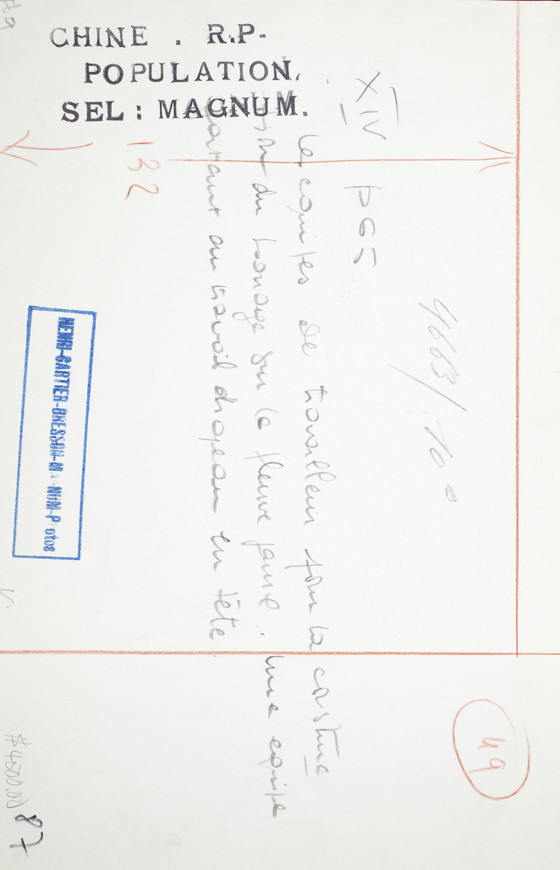 CHINE . R.P-
POPULATION,
SEL : MAGNUM.
XIV p65
4663/100
les équipes de travailleurs pour la construc
du barrage sur le fleuve jaune. Une équipe
partant au travail drapeau en tête
132
HENRI-CARTIER-BRESSON-M NUM-P otos
49
#4500.00
87